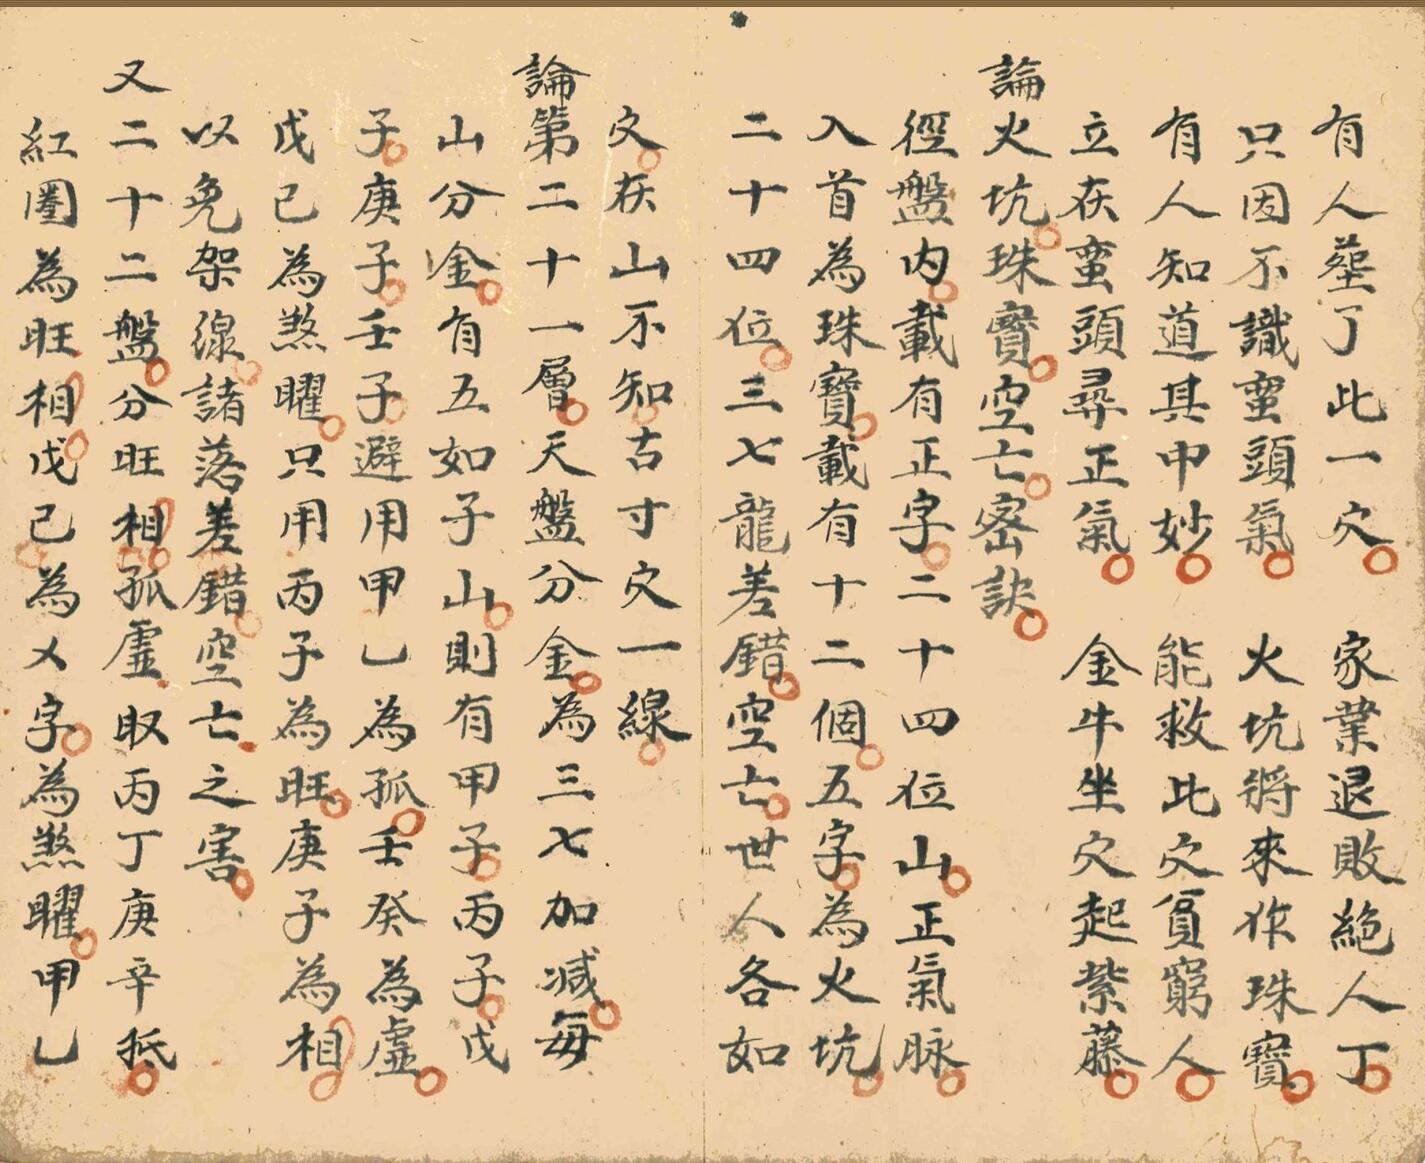 有人塟了此一穴 家業退敗絕人丁
只因不識蛮頭氣 火坑將來作珠寶
有人知道其中妙 能救此穴貟窮人
立在蛮頭尋正氣 金牛坐穴起紫藤
論火坑珠寶空亡宻訣
徑盤內載有正字二十四位山正氣脉
入首為珠寶載有十二個五字為火坑
二十四位三七龍差錯空亡世人各如
穴在山不知古寸穴一線
論第二十一層天盤分金為三七加减每
山分金有五如子山則有甲子丙子戊
子庚子壬子避用甲乙為孤壬癸為虛
戊己為煞曜只用丙子為旺庚子為相
以免架線諸落差錯空亡之害
又二十二盤分旺相孤虛取丙丁庚辛抵
紅圈為旺相戊己為乂字為煞曜甲乙